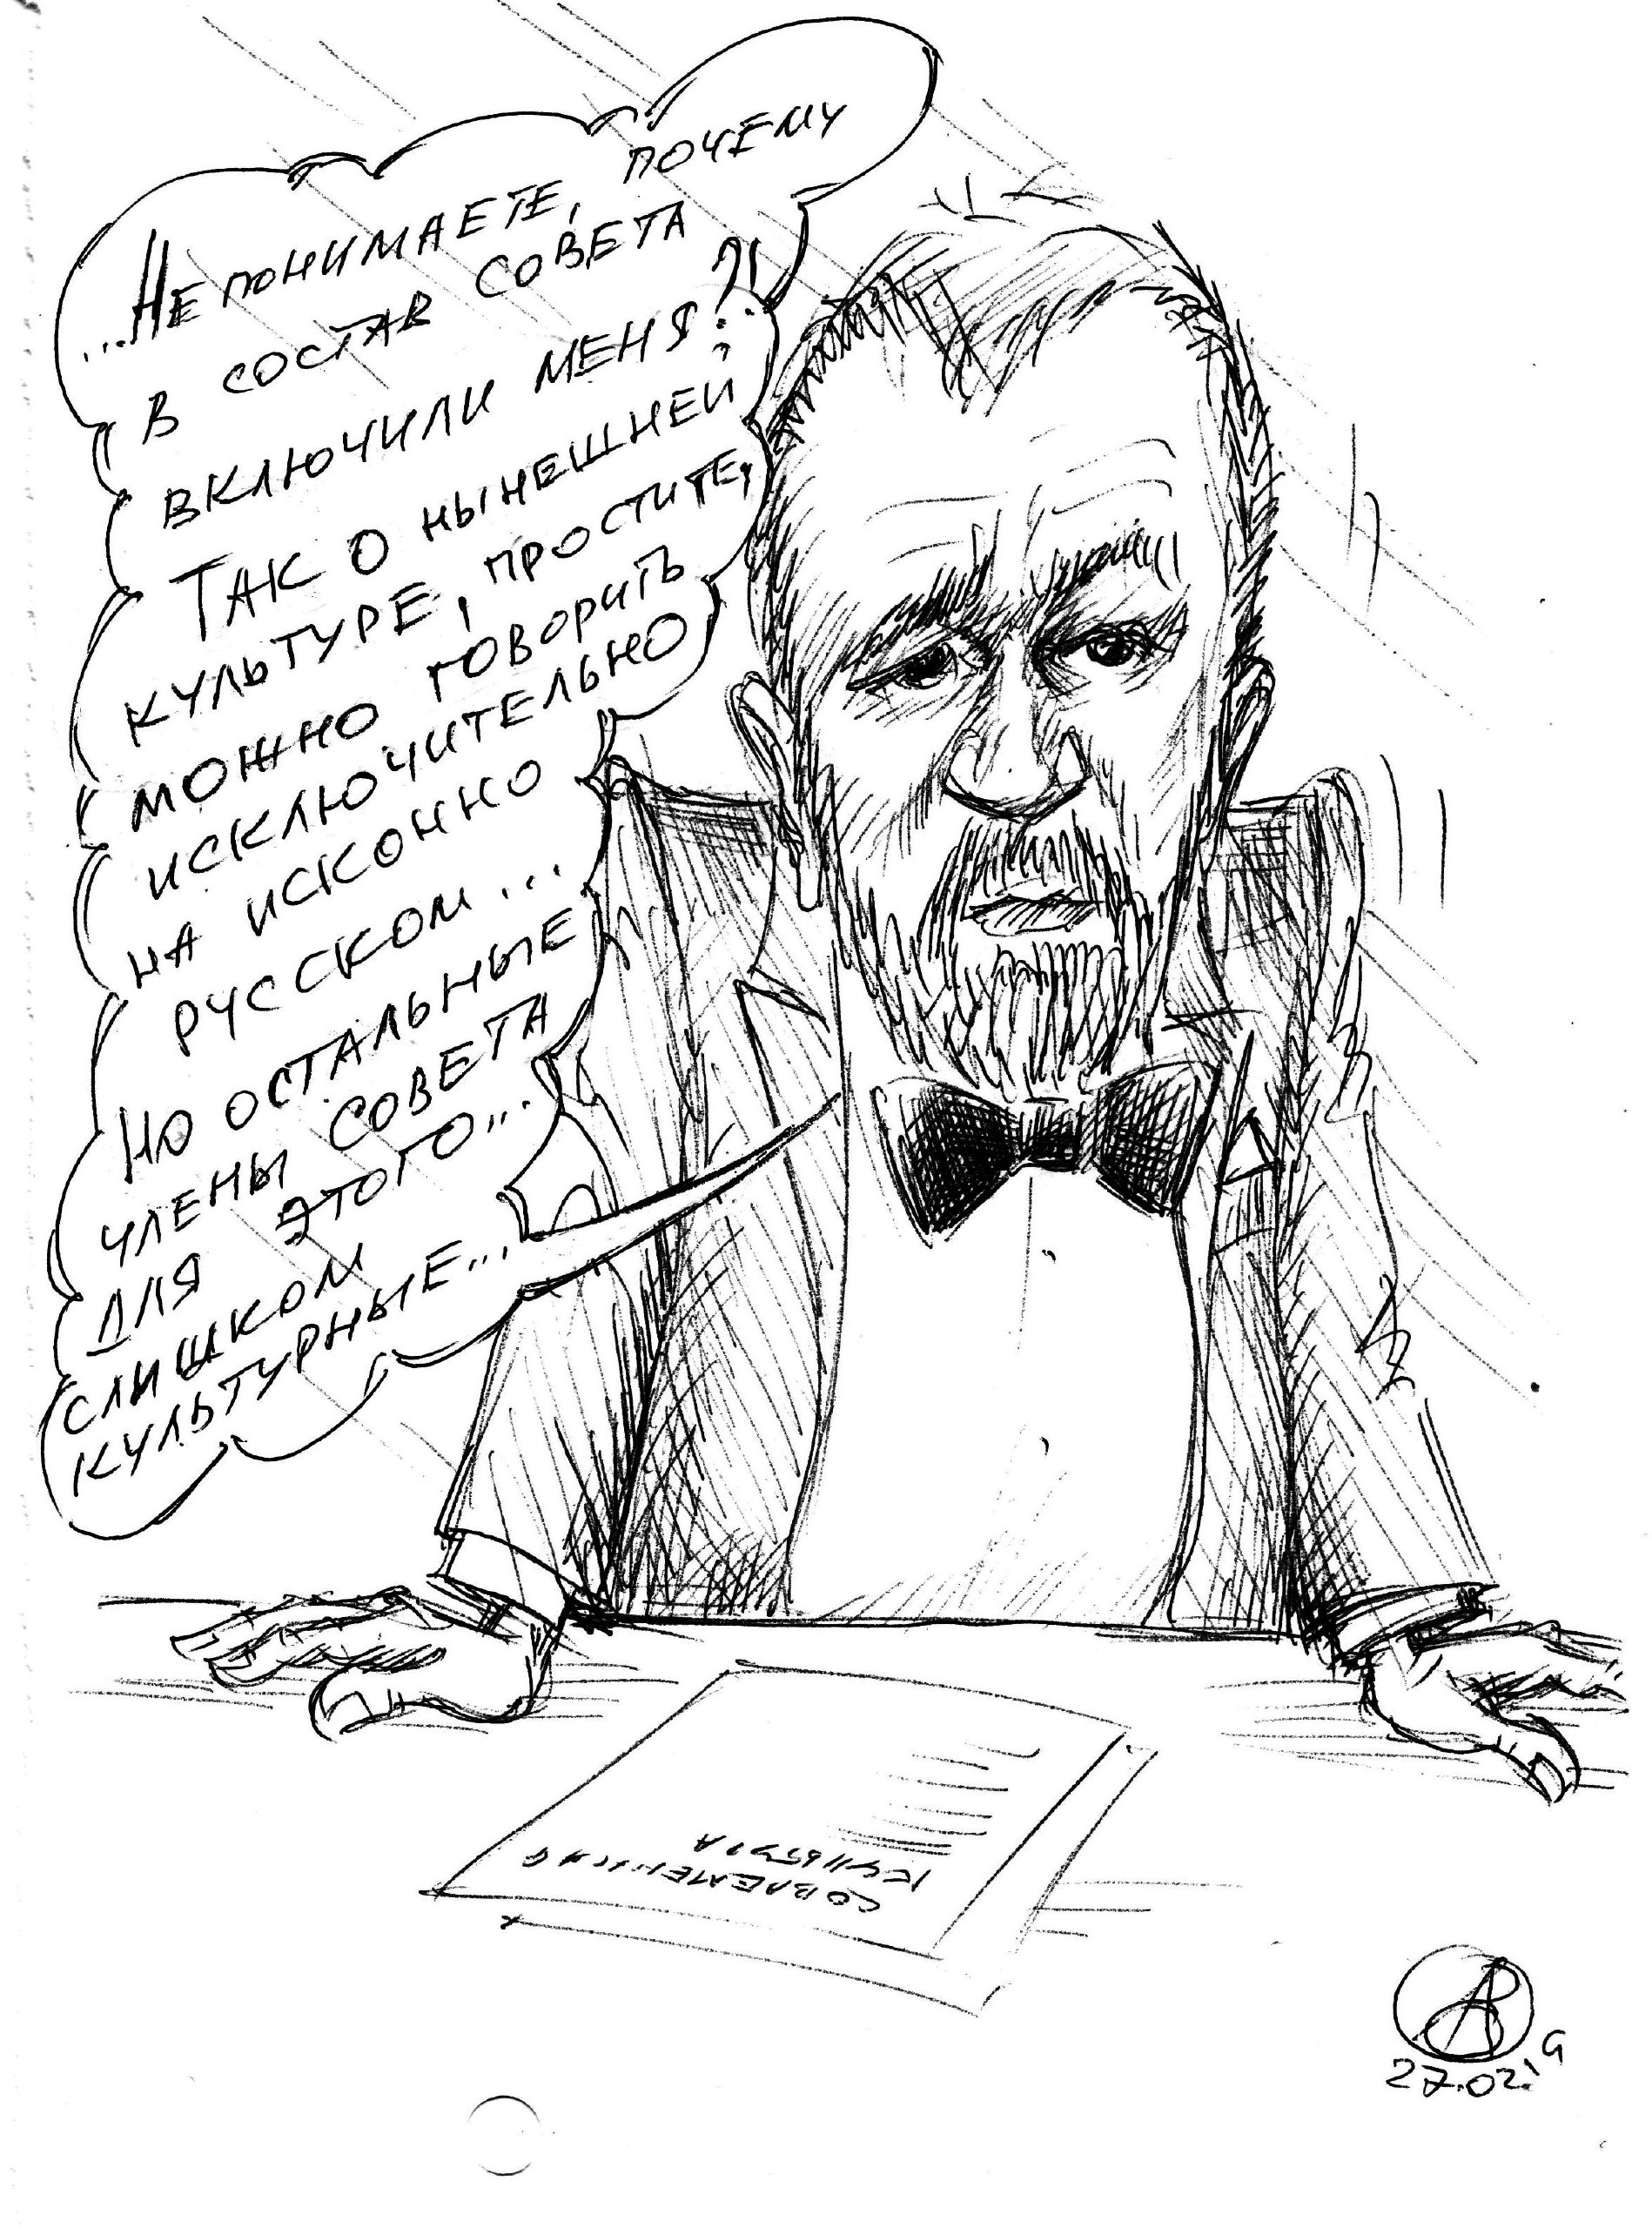 ...НЕ ПОНИМАЕТЕ, ПОЧЕМУ
В СОСТАВ СОВЕТА
ВКЛЮЧИЛИ МЕНЯ?!
ТАК О НЫНЕШНЕЙ
КУЛЬТУРЕ, ПРОСТИТЕ,
МОЖНО ГОВОРИТЬ
ИСКЛЮЧИТЕЛЬНО
НА ИСКОННО
РУССКОМ...
НО ОСТАЛЬНЫЕ
ЧЛЕНЫ СОВЕТА
ДЛЯ ЭТОГО...
СЛИШКОМ
КУЛЬТУРНЫЕ...
СОВРЕМЕННАЯ
КУЛЬТУРА
27.02.'19